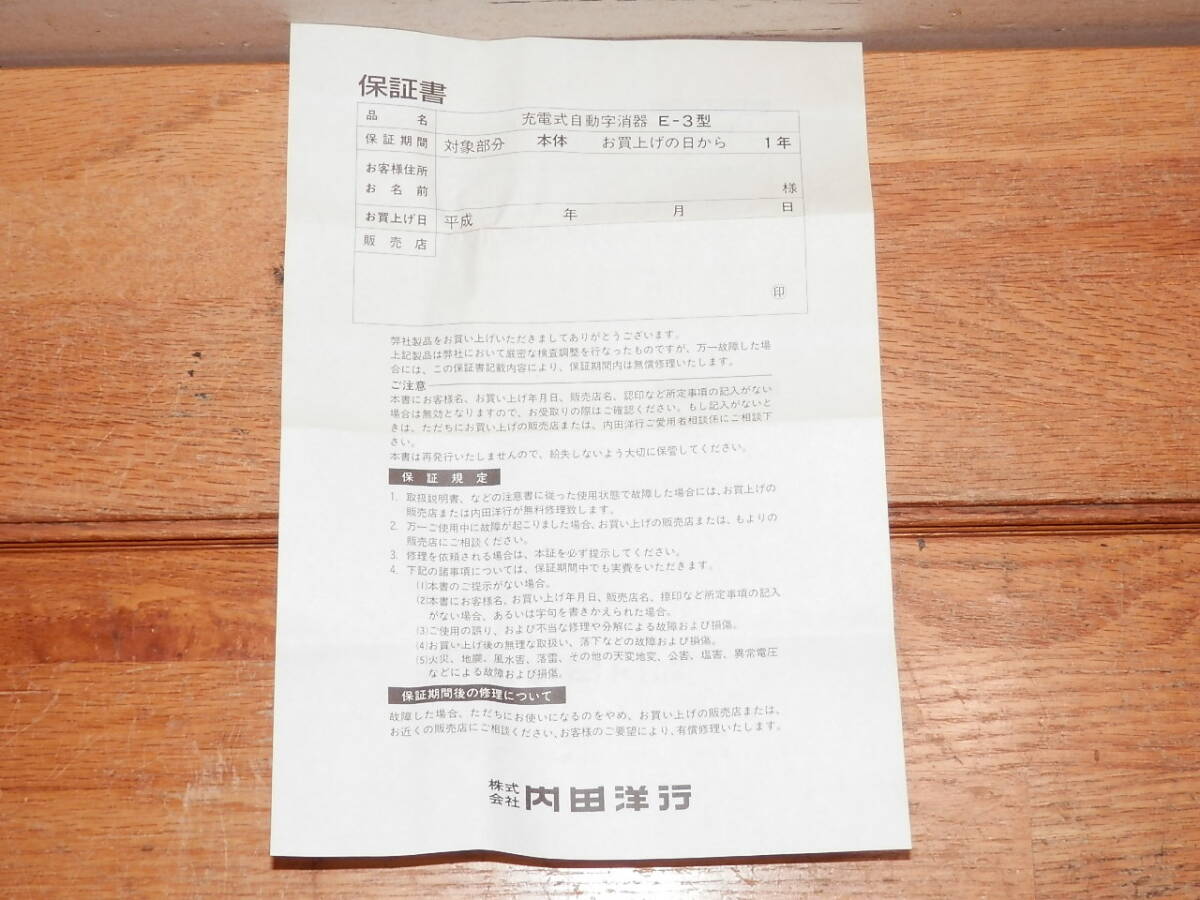 保証書
品名 充電式自動字消器 E-3型
保証期間 対象部分 本体 お買上げの日から 1年
お客様住所
お名前 様
お買上げ日 平成 年 月 日
販売店
印
弊社製品をお買い上げいただきましてありがとうございます。
上記製品は弊社において厳密な検査調整を行なったものですが、万一故障した場
合には、この保証書記載内容により、保証期間内は無償修理いたします。
ご注意
本書にお客様名、お買い上げ年月日、販売店名、認印など所定事項の記入がない
場合は無効となりますので、お受取りの際はご確認ください。もし記入がないと
きは、ただちにお買い上げの販売店または、内田洋行ご愛用者相談係にご相談下
さい。
本書は再発行いたしませんので、紛失しないよう大切に保管してください。
保証規定
1. 取扱説明書、などの注意書に従った使用状態で故障した場合には、お買上げの
販売店または内田洋行が無料修理致します。
2. 万一ご使用中に故障が起こりました場合、お買い上げの販売店または、もよりの
販売店にご相談ください。
3. 修理を依頼される場合は、本証を必ず提示してください。
4. 下記の諸事項については、保証期間中でも実費をいただきます。
(1)本書のご提示がない場合。
(2)本書にお客様名、お買い上げ年月日、販売店名、捺印など所定事項の記入
がない場合、あるいは字句を書きかえられた場合。
(3)ご使用の誤り、および不当な修理や分解による故障および損傷。
(4)お買い上げ後の無理な取扱い、落下などの故障および損傷。
(5)火災、地震、風水害、落雷、その他の天変地変、公害、塩害、異常電圧
などによる故障および損傷。
保証期間後の修理について
故障した場合、ただちにお使いになるのをやめ、お買い上げの販売店または、
お近くの販売店にご相談ください、お客様のご要望により、有償修理いたします。
株式会社 内田洋行